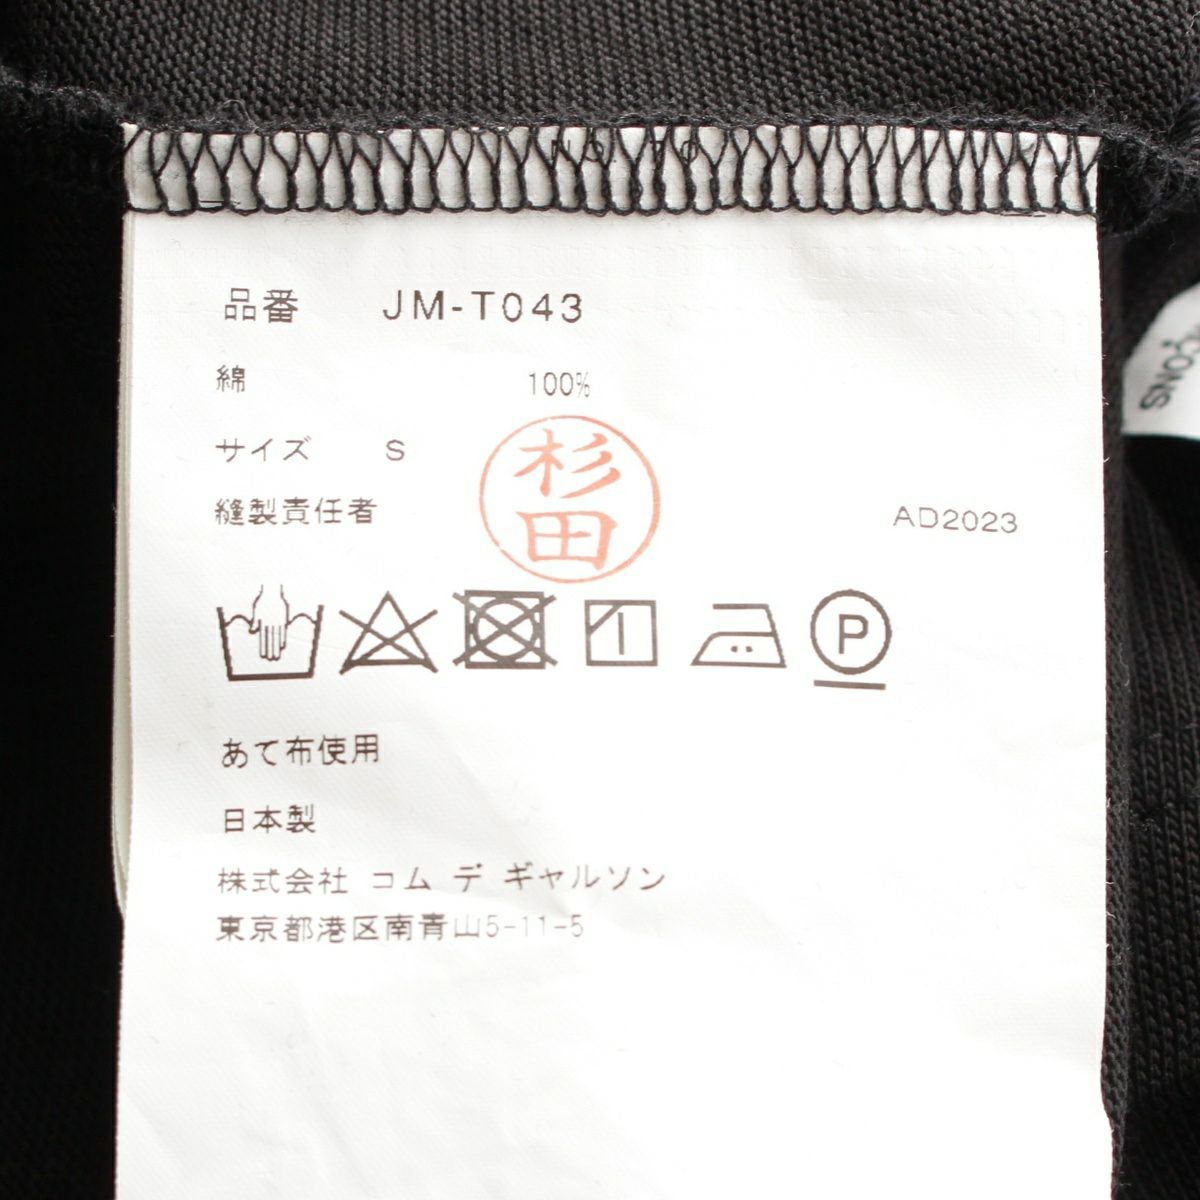 品番 JM-T043
綿 100%
サイズ S
杉田
縫製責任者 AD2023
P
あて布使用
日本製
株式会社 コム デ ギャルソン
東京都港区南青山5-11-5
ÇONS